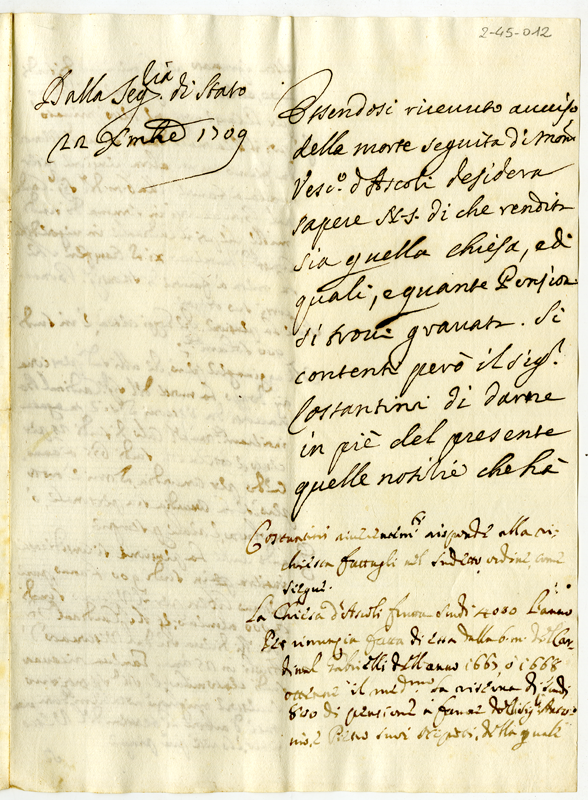 2-45-012
Dalla Seg.ria di Stato
22 Xmbre 1709
Essendosi ricevuto avviso
della morte seguita di Mons.
Vesc.o d'Ascoli desidera
sapere N.S. di che rendita
sia quella chiesa, e di
quali, e quante Pensioni
si trovi gravata. Si
contenti però il Sig.r
Costantini di darne
in piè del presente
quelle notitie che hà
Costantini risponde alla ri-
chiesta fattagli nel sudetto ordine come
siegue.
La Chiesa d'Ascoli frutta scudi 4000 l'anno
Per rinunzia fatta di essa dalla b.m. del Car-
dinal Gabrielli dell'anno 1667 ò 1668
ottenne il med.mo la riserva di scudi
600 di pensione à favore delli Sig.ri
e Pietro suoi nepoti, della quale